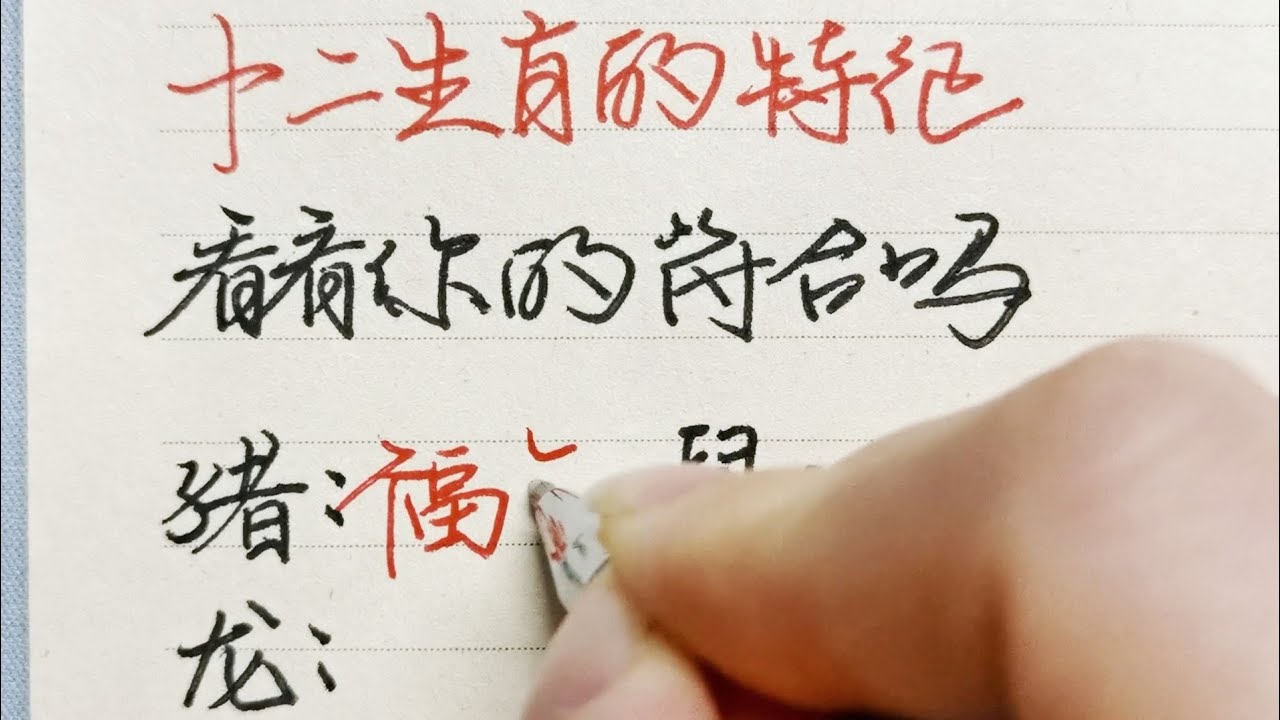 十二生肖的特征
看看你的符合吗
猪：福
龙：